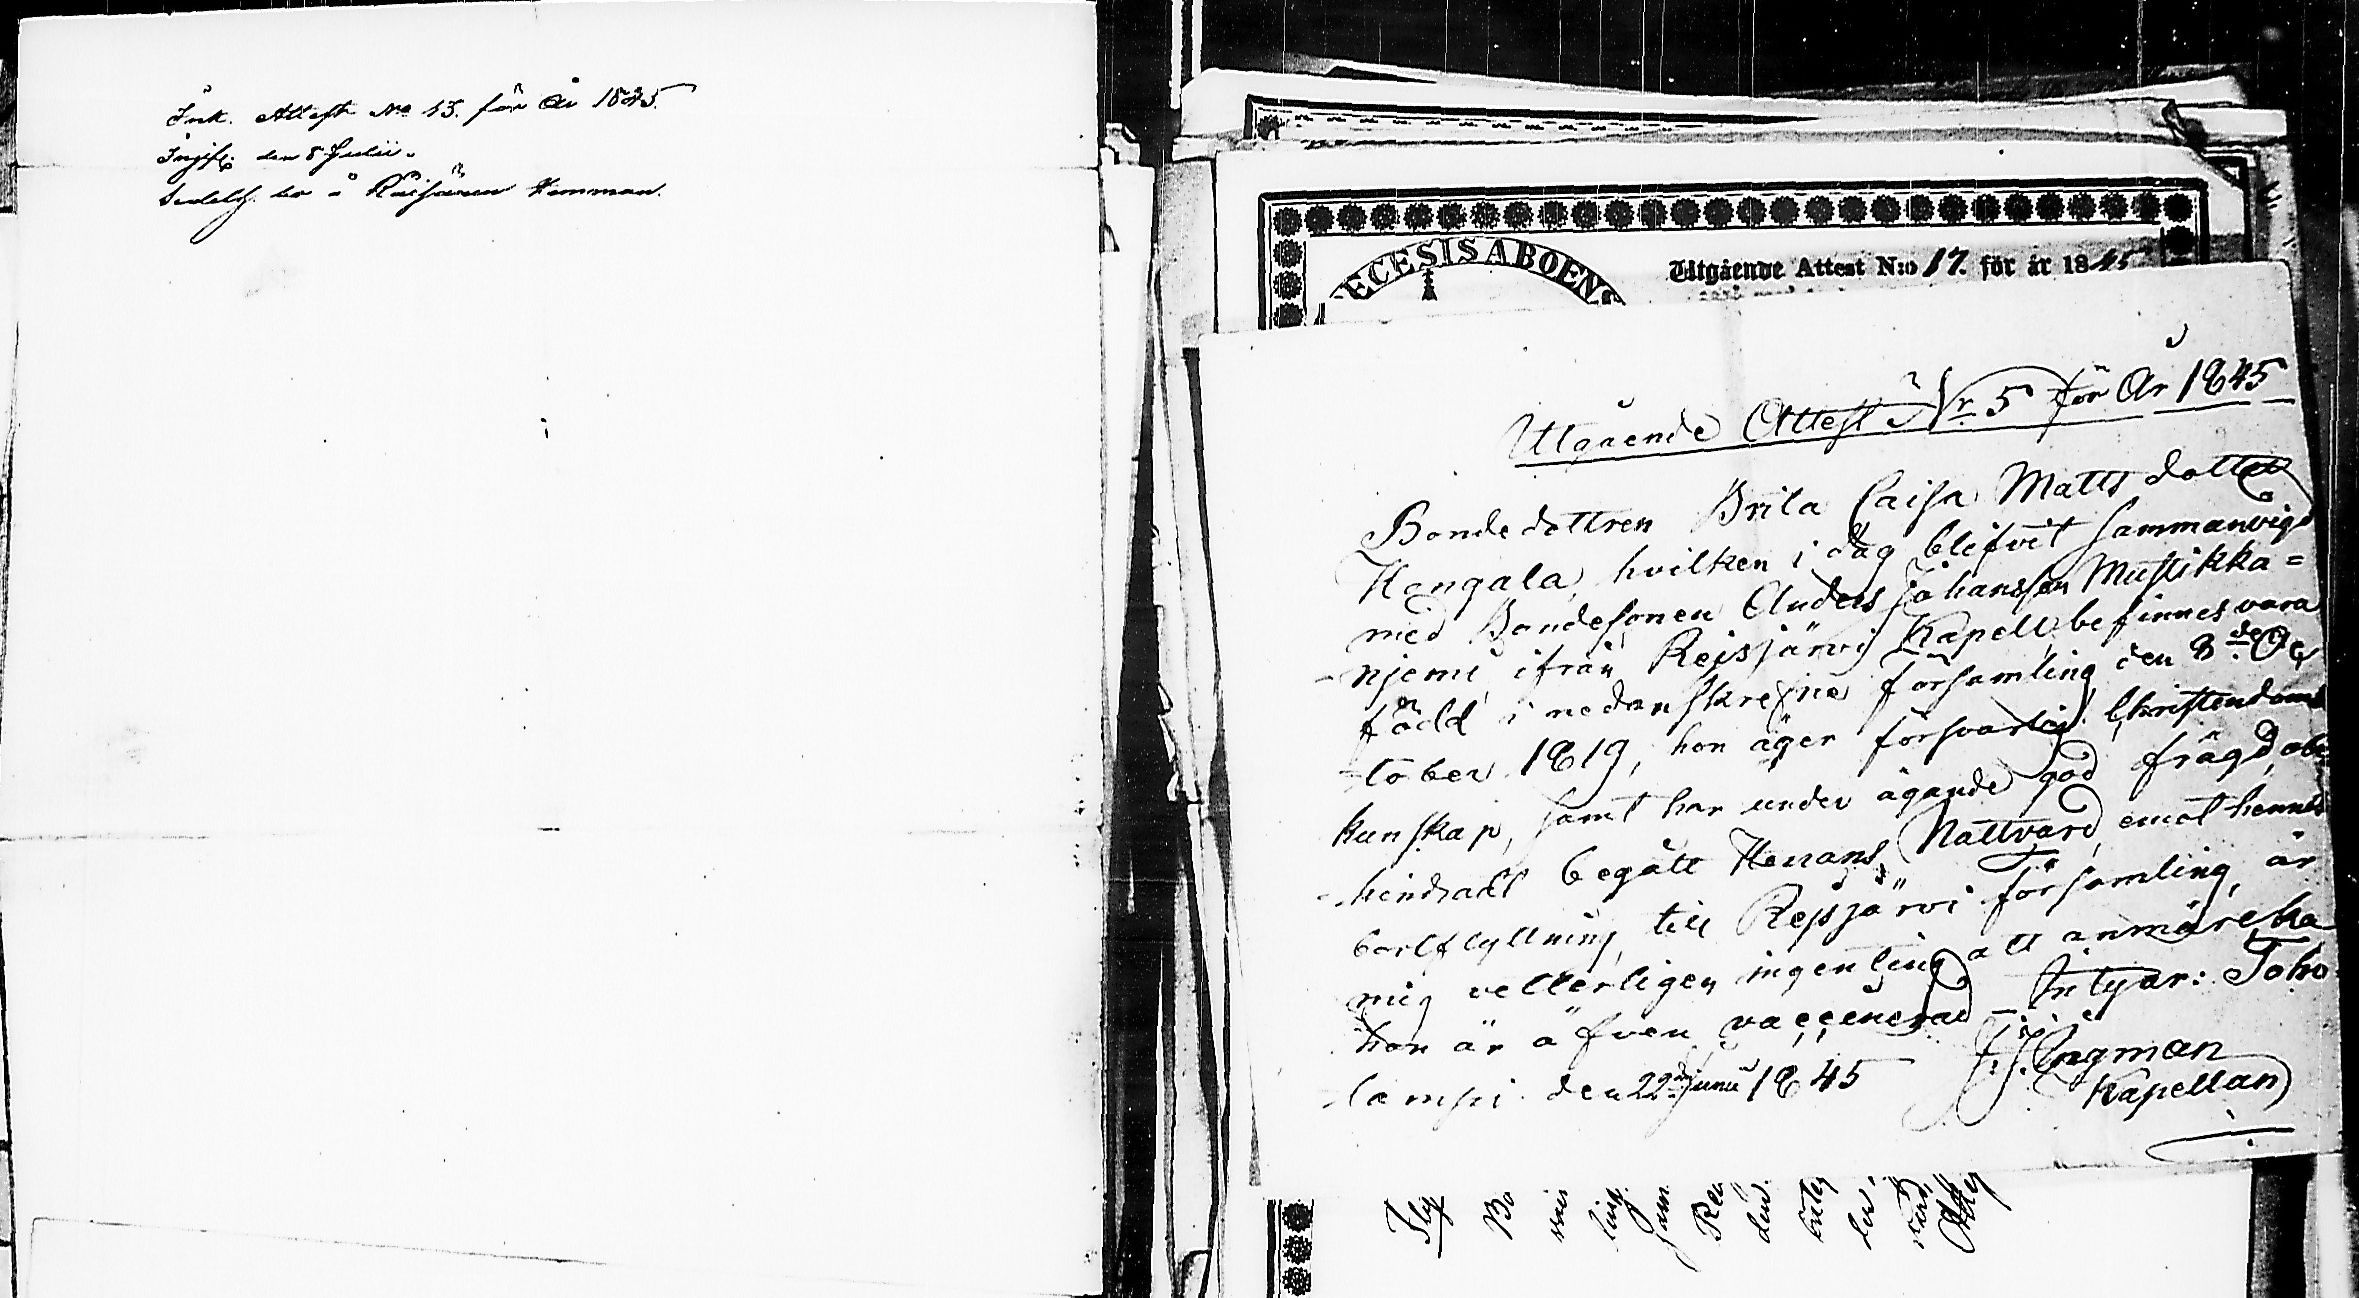 Ink. Attest No 13. för År 1845.
Ingift den 8 Julii.
bo å Räisänen Hemman.
ECESIS ABOENS
Utgående Attest N:o 17. för år 1845
Utgående Attest Nr 5 för År 1845
Bondedottren Brita Caisa Mattsdotter
Kangala, hvilken i dag blifvit sammanvigd
med Bondesonen Anders Johansson Mustikka=
-njemi ifrån Reisjärvi Kapell, befinnes vara
född i nedanskrefne församling den 8de Oc
-tober 1819, hon äger försvarlig Christendoms
kunskap, samt har under ägande god frägd, obe
-hindradt begått Herrans Nattvard, emot hennes
bortflyttning till Rejsjärvi församling, är
mig vetterligen ingenting att anmärcka
hon är äfven vaccinerad – Intygar: Toho
-lampi den 22dra Junii 1845
J. J. Ingman
Kapellan
Bo
Rei
den